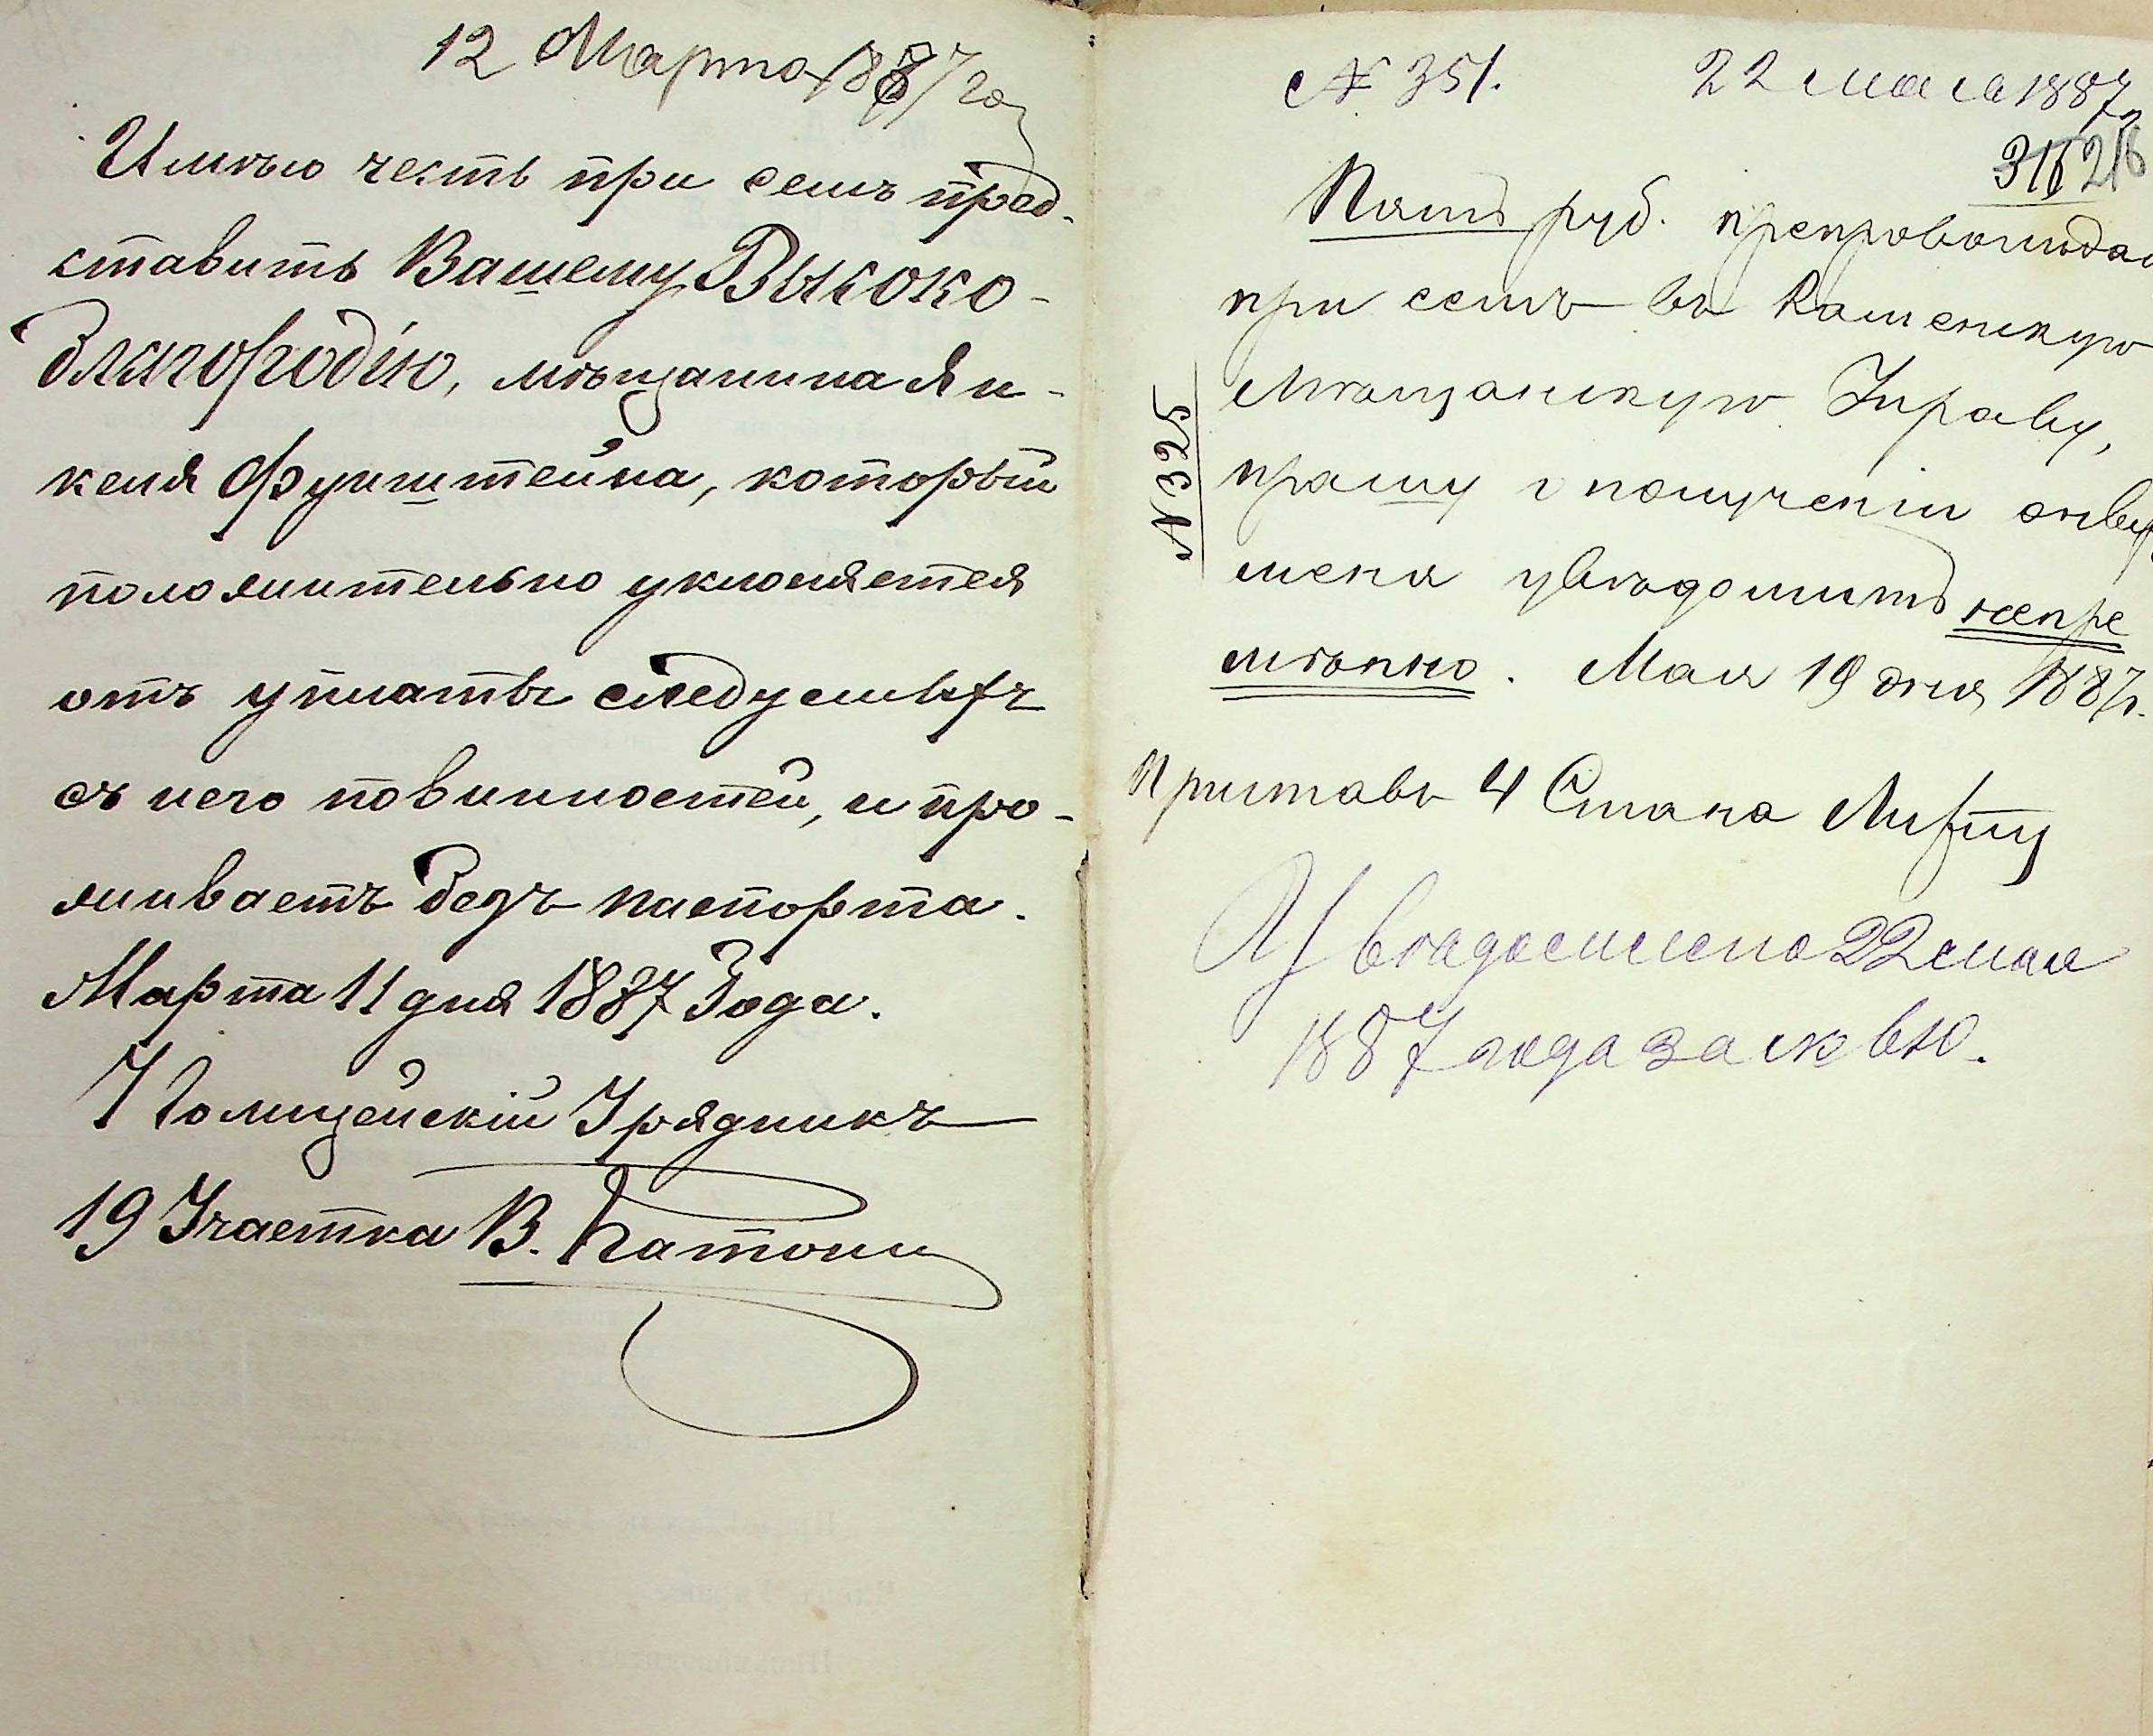 12 Марта 1887 год
Имѣю честь при семъ пред-
ставить Вашему Высоко-
благородію, мѣщанина Ян-
келя Фунштейна, который
положительно уклоняется
отъ уплаты следуемыхъ
съ него повинностей, и про-
живаетъ безъ паспорта.
Марта 11 дня 1887 Года.
Полицейскій Урядникъ
19 Участка В.
№ 351. 22 мая 1887 г
316 216
Пять руб. препровождаю
при семъ въ Каменскую
Мѣщанскую Управу,
прашу о полученіи оныхъ
меня увѣдомить непре
мѣнно. Мая 19 дня 1887 г.
№ 325
Приставъ 4 Стана
Увѣдомлено 22 мая
1887 года за №